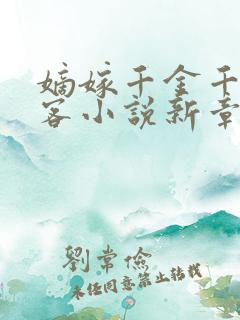 嫡嫁千金千
客小說新章
劉常儉
未經同意禁止轉載